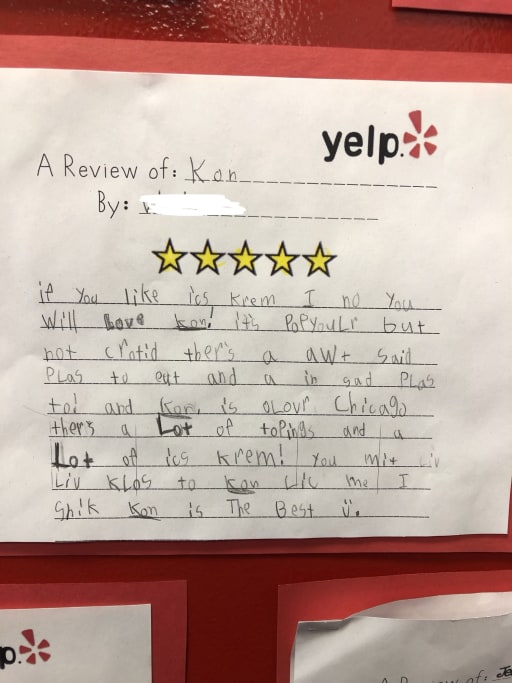 yelp
A Review of: Kon
By:
if You like ics Krem I no You
Will Love Kon! it's PoPyouLr but
not crotid ther's a awt said
PLas to eut and a in sad PLas
to! and Kon. is oLovr Chicago
ther's a Lot of topings and a
Lot of ics Krem! You mit Liv
Liv KLos to Kon Lic me I
ghik Kon is The Best ü.
p.
A Review of: Je